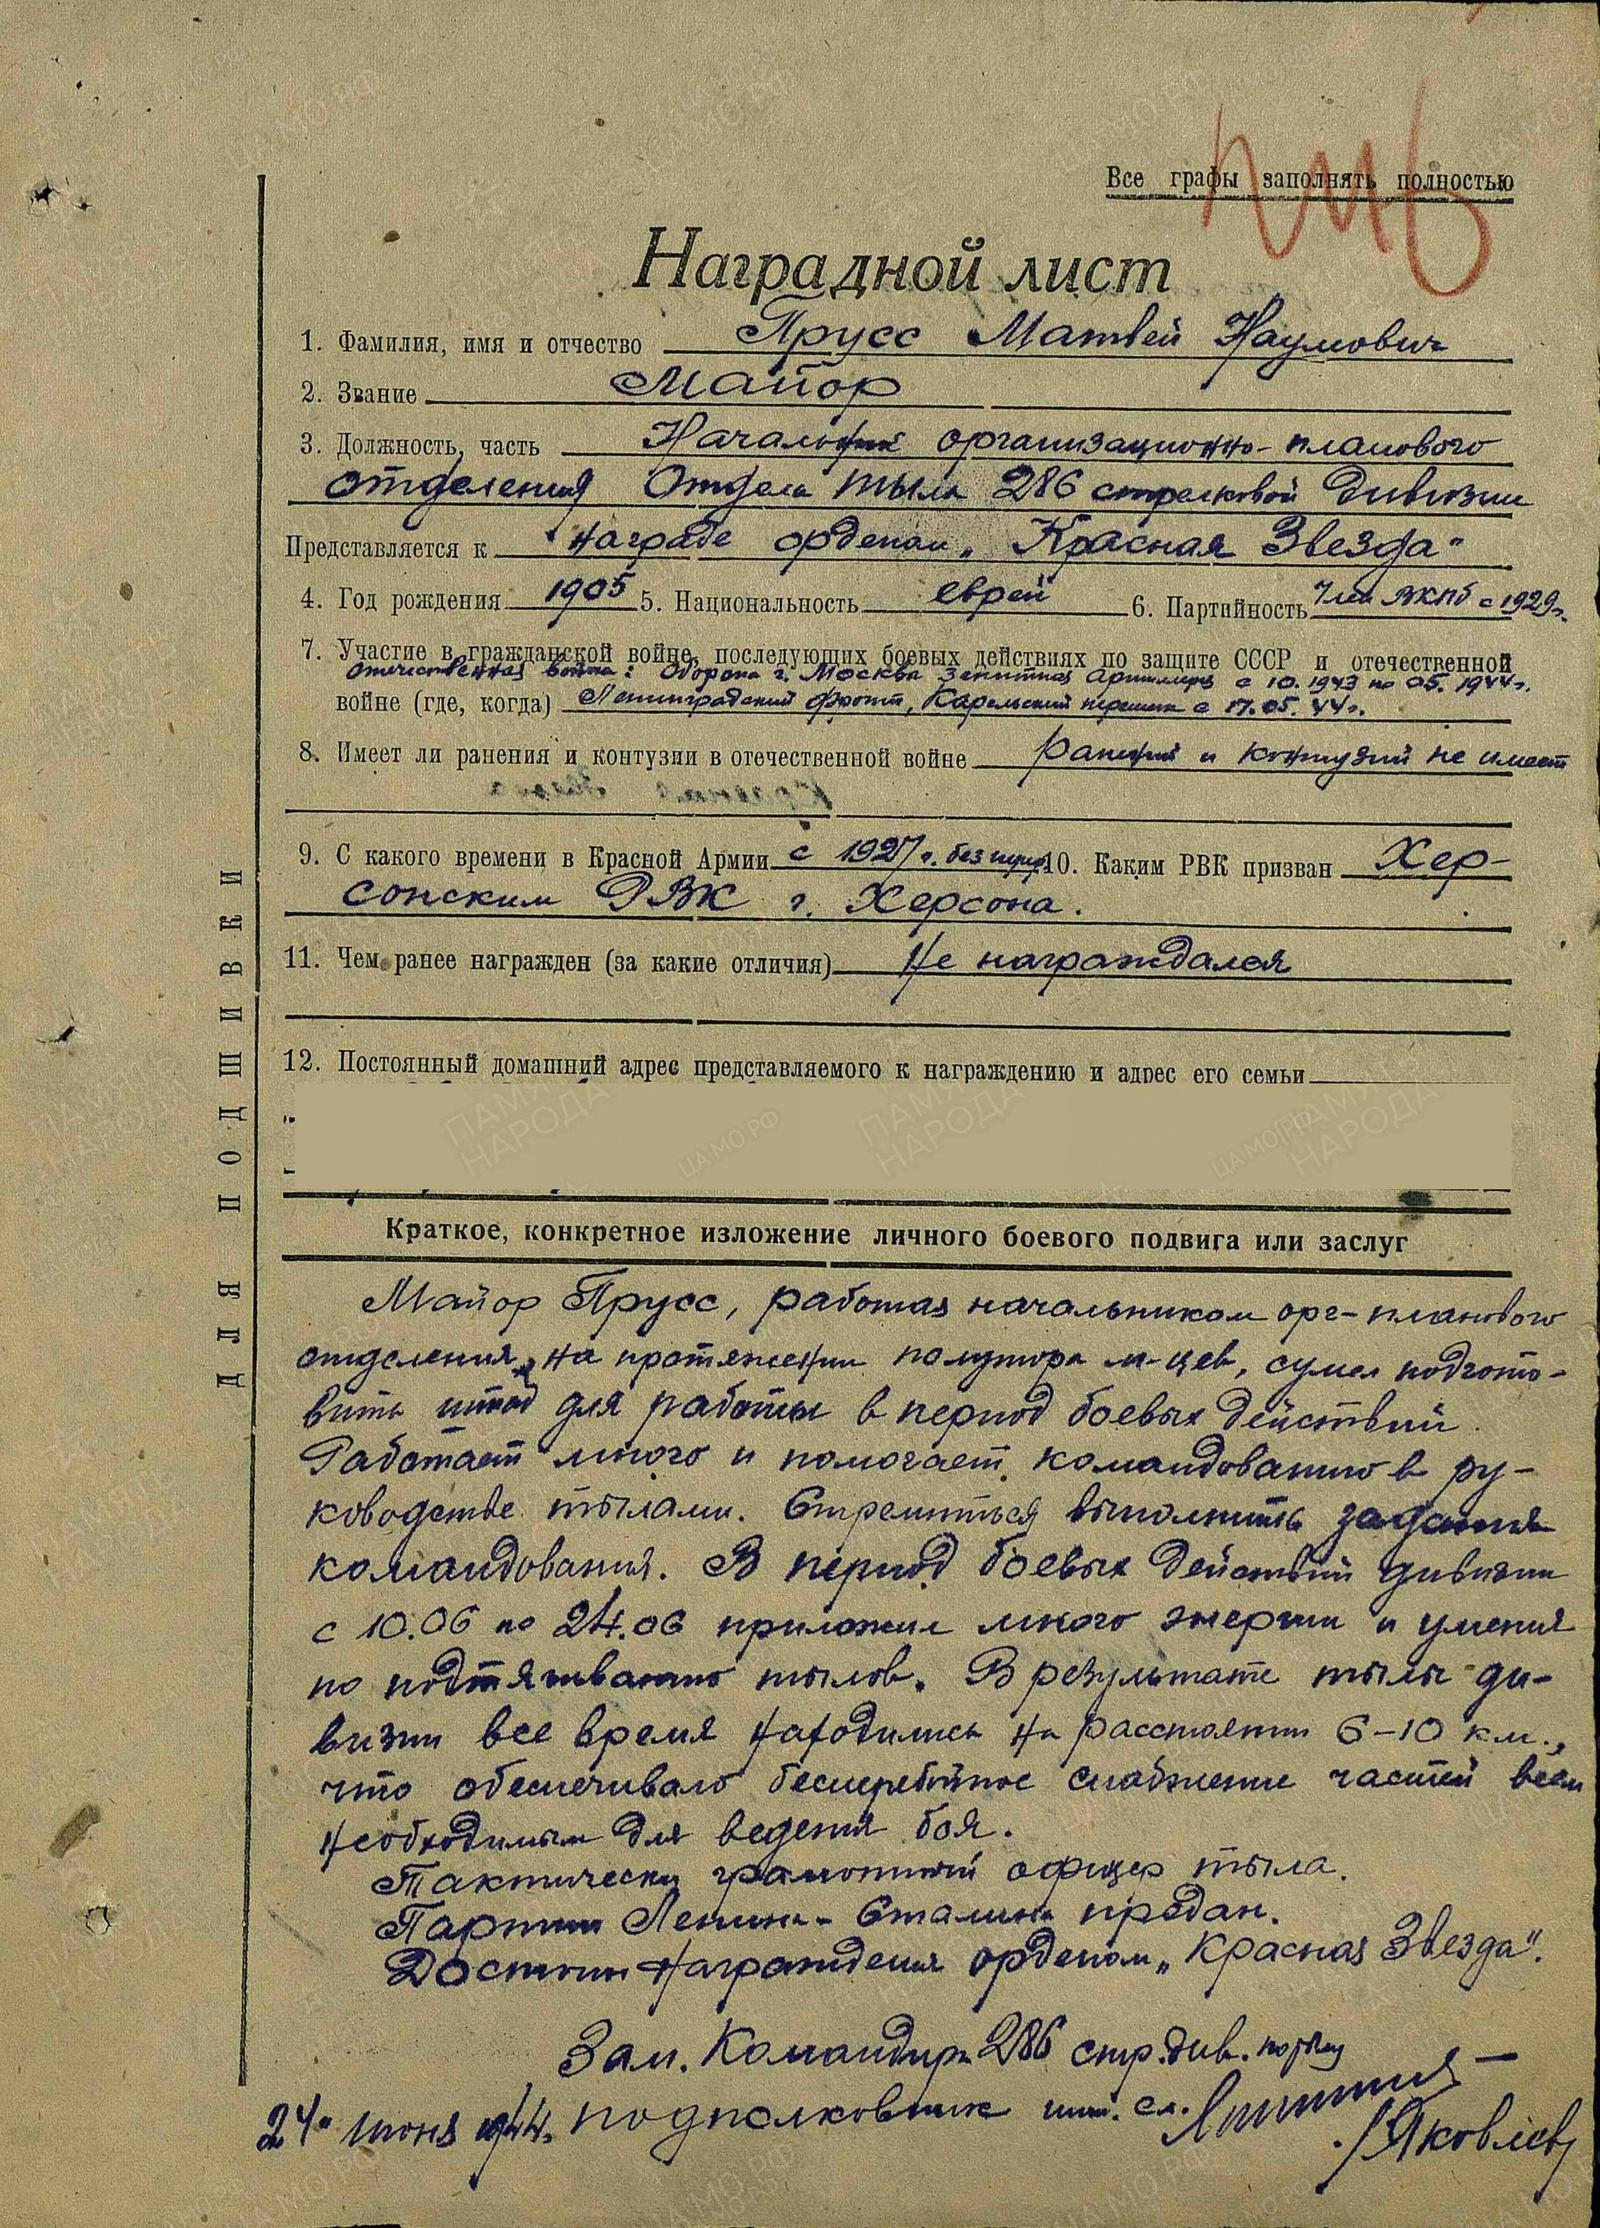 Все графы заполнять полностью
Наградной лист
1. Фамилия, имя и отчество Прусс Матвей Наумович
2. Звание Майор
3. Должность, часть Начальник организационно-планового
отделения Отдела тыла 286 стрелковой дивизии
Представляется к награде орденом „Красная Звезда"
4. Год рождения 1905 5. Национальность еврей 6. Партийность Член ВКПб с 1929г.
7. Участие в гражданской войне, последующих боевых действиях по защите СССР и отечественной
отечественная война: Оборона г. Москва Зенитная Артиллерия с 10.1943 по 05.1944г.
войне (где, когда) Ленинградский фронт, Карельский перешеек с 17.05.44г.
8. Имеет ли ранения и контузии в отечественной войне ранений и контузий не имеет
9. С какого времени в Красной Армии с 1927г. без 10. Каким РВК призван Хер-
сонским РВК г. Херсона.
11. Чем ранее награжден (за какие отличия) Не награждался
12. Постоянный домашний адрес представляемого к награждению и адрес его семьи
ДЛЯ ПОДШИВКИ
Краткое, конкретное изложение личного боевого подвига или заслуг
Майор Прусс, работая начальником орг-планового
отделения, на протяжении полутора м-цев, сумел подгото-
вить штаб для работы в период боевых действий.
Работает много и помогает командованию в ру-
ководстве тылами. Стремиться выполнить задания
командования. В период боевых действий дивизии
с 10.06 по 24.06 приложил много энергии и умения
по подтягиванию тылов. В результате тылы ди-
визии все время находились на расстоянии 6-10 км.,
что обеспечивало бесперебойное снабжение частей всем
необходимым для ведения боя.
Тактически грамотный офицер тыла.
Партии Ленина-Сталина предан.
Достоин награждения орденом „Красная Звезда".
Зам. Командира 286 стр.див. по тылу
24" июня 1944. подполковник инт. сл.
/Яковлев/